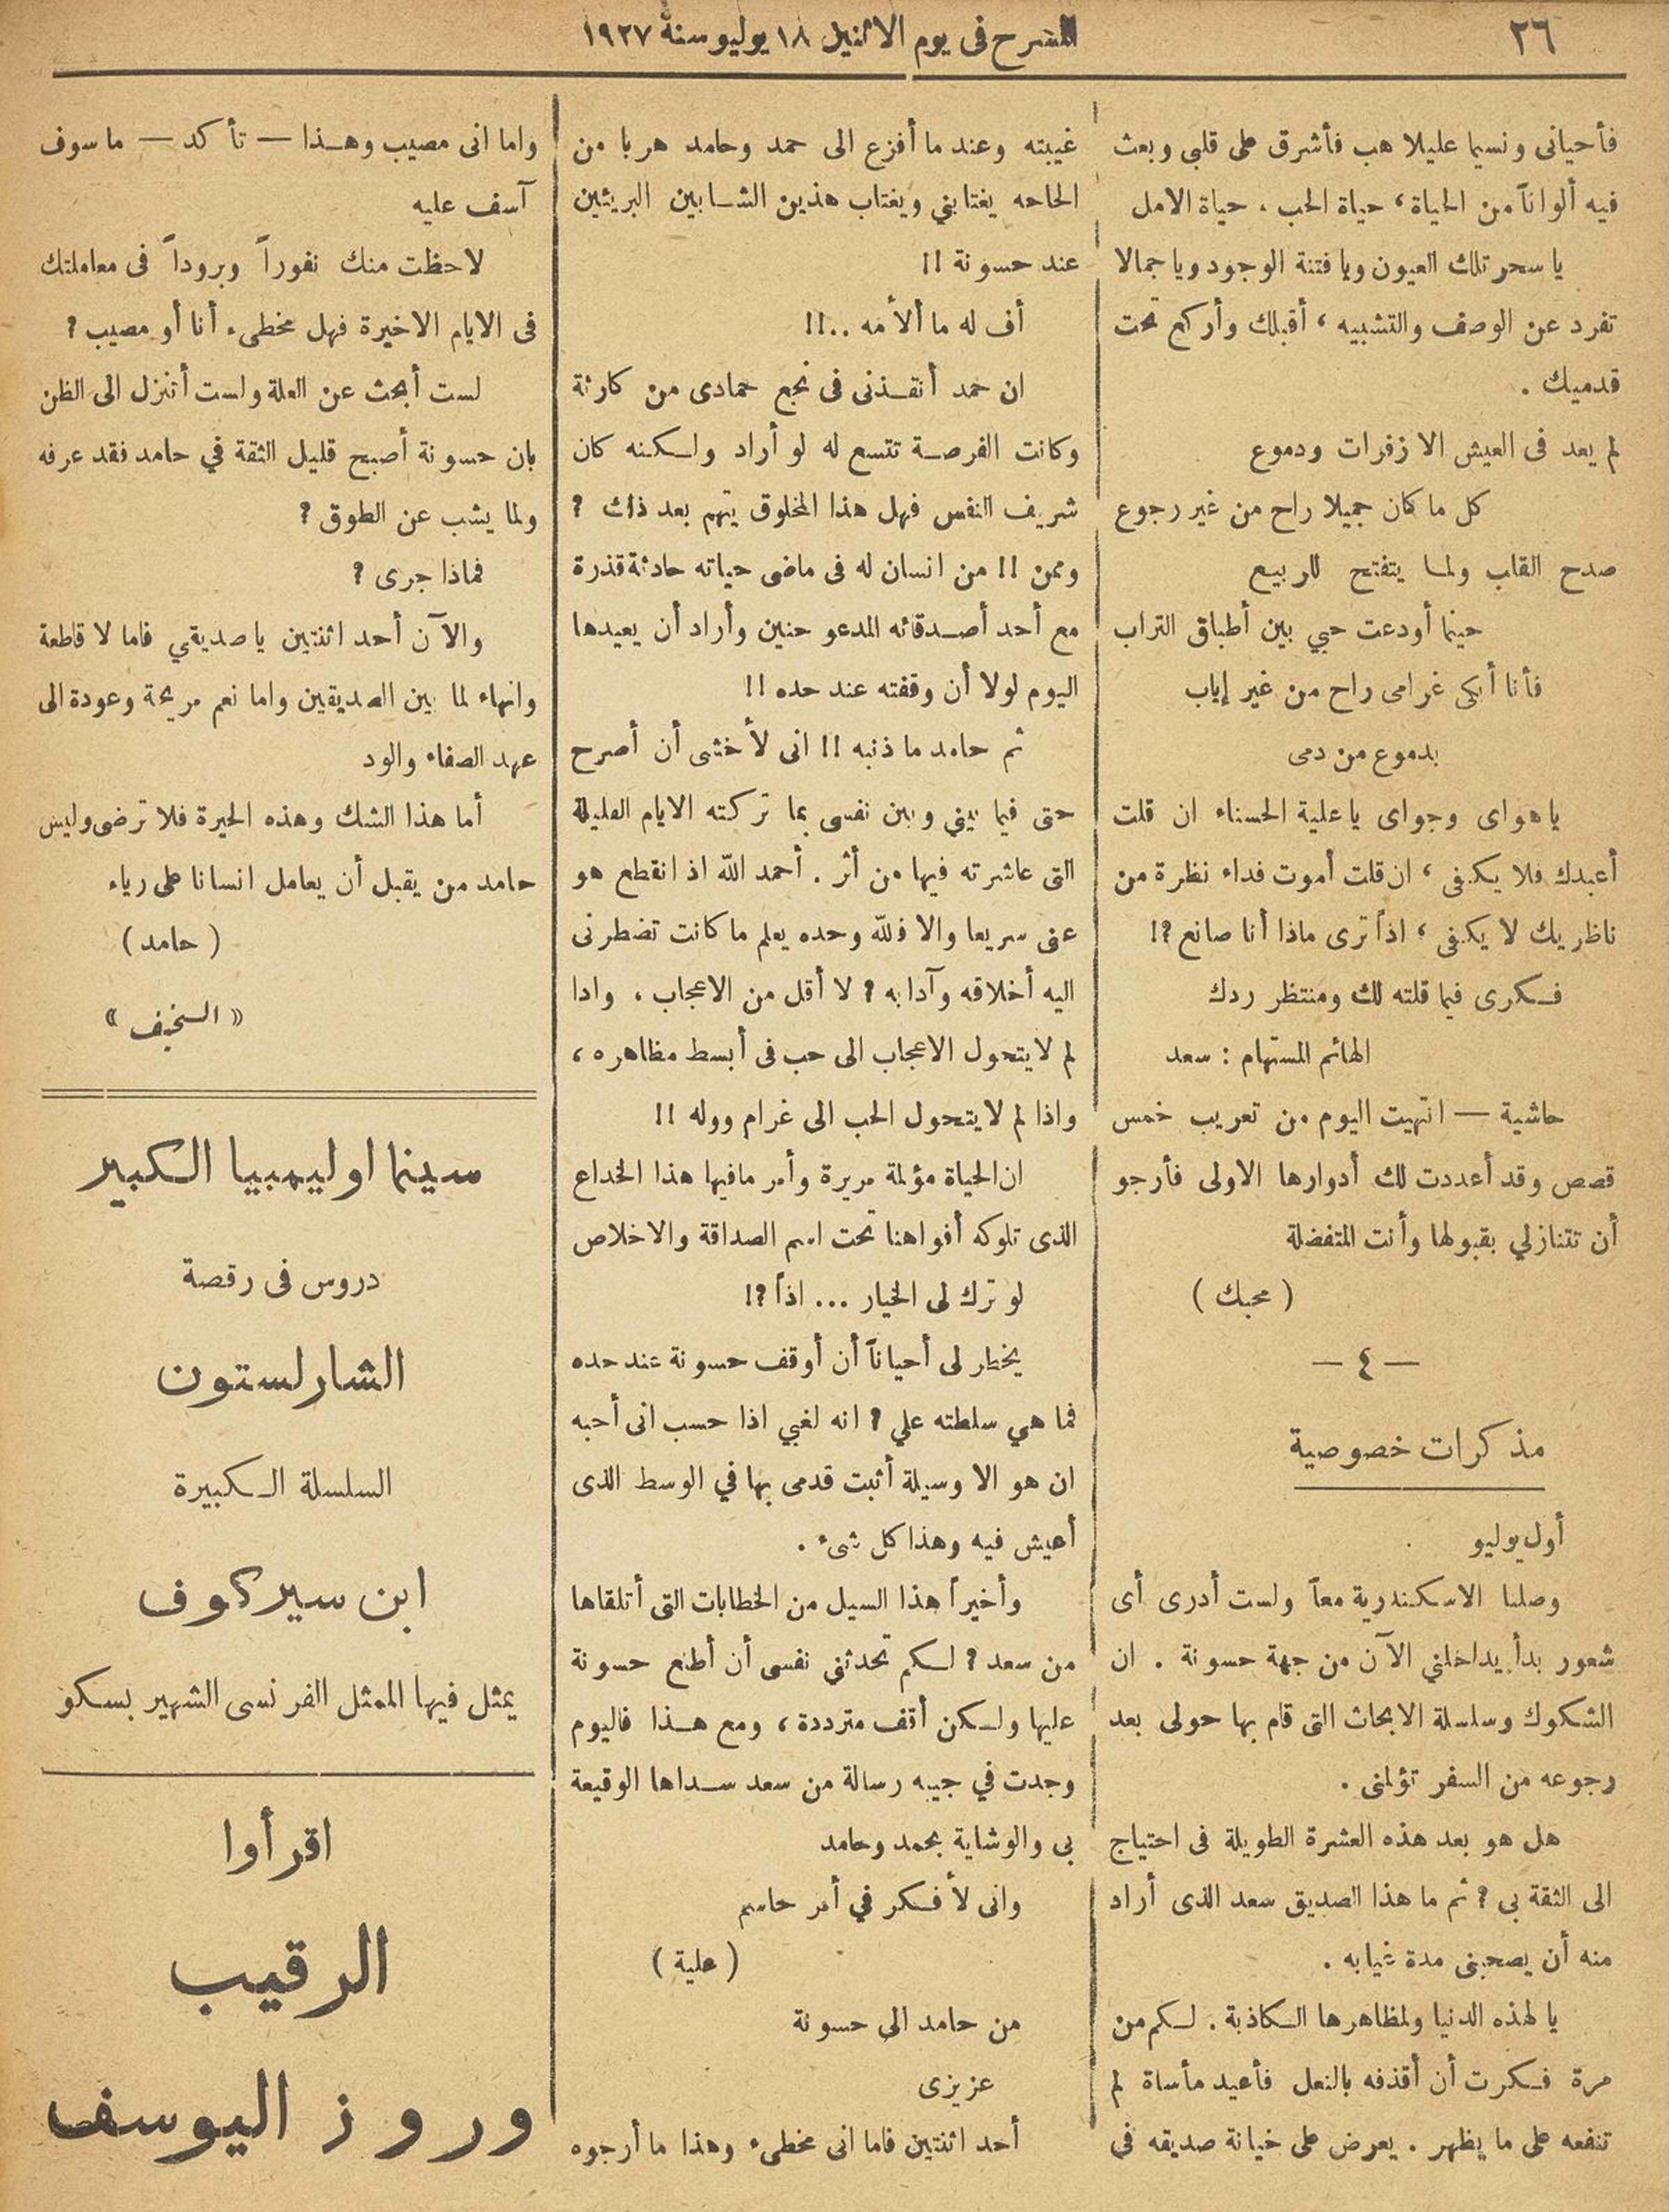 ٢٦
المسرح فى يوم الاثنين ١٨ يوليو سنة ١٩٢٧
فأحيانى ونسيما عليلا هب فأشرق على قلبى وبعث
فيه ألواناً من الحياة، حياة الحب. حياة الامل
يا سحر تلك العيون ويا فتنة الوجود ويا جمالا
تفرد عن الوصف والتشبيه، أقبلك وأركع تحت
قدميك.
لم يعد فى العيش الا زفرات ودموع
كل ما كان جميلا راح من غير رجوع
صدح القلب ولما يتفتح للربيع
حينما أودعت حبي بين أطباق التراب
فأنا أبكى غرامى راح من غير إياب
بدموع من دمى
يا هواى وجواى يا علية الحسناء ان قلت
أعبدك فلا يكفى، ان قلت أموت فداء نظرة من
ناظريك لا يكفى، اذاً ترى ماذا أنا صانع؟!
فكرى فيما قلته لك ومنتظر ردك
الهائم المستهام: سعد
حاشية — انتهيت اليوم من تعريب خمس
قصص وقد أعددت لك أدوارها الاولى فأرجو
أن تتنازلي بقبولها وأنت المتفضلة
( محبك )
— ٤ —
مذكرات خصوصية
أول يوليو
وصلنا الاسكندرية معاً ولست أدرى أى
شعور بدأ يداخلني الآن من جهة حسونة. ان
الشكوك وسلسلة الابحاث التى قام بها حولى بعد
رجوعه من السفر تؤلمنى.
هل هو بعد هذه العشرة الطويلة فى احتياج
الى الثقة بى؟ ثم ما هذا الصديق سعد الذى أراد
منه أن يصحبنى مدة غيابه.
يا لهذه الدنيا ولمظاهرها الكاذبة. لكم من
مرة فكرت أن أقذفه بالنعل فأعيد مأساة لم
تنفعه على ما يظهر. يعرض على خيانة صديقه فى
غيبته وعند ما أفزع الى حمد وحامد هربا من
الحاحه يغتابني ويغتاب هذين الشابين البريئين
عند حسونة!!
أف له ما ألأمه..!!
ان حمد أنقذنى فى نجع حمادى من كارثة
وكانت الفرصة تتسع له لو أراد ولكنه كان
شريف النفس فهل هذا المخلوق يتهم بعد ذلك؟
وممن!! من انسان له فى ماضى حياته حادثة قذرة
مع أحد أصدقائه المدعو حنين وأراد أن يعيدها
اليوم لولا أن وقفته عند حده!!
ثم حامد ما ذنبه!! انى لأخشى أن أصرح
حتى فيما بيني وبين نفسى بما تركته الايام القليلة
التى عاشرته فيها من أثر. أحمد الله اذ انقطع هو
عنى سريعا والا فالله وحده يعلم ما كانت تضطرنى
اليه أخلاقه وآدابه؟ لا أقل من الاعجاب. واذا
لم لا يتحول الاعجاب الى حب فى أبسط مظاهره،
واذا لم لا يتحول الحب الى غرام ووله!!
ان الحياة مؤلمة مريرة وأمر ما فيها هذا الخداع
الذى تلوكه أفواهنا تحت اسم الصداقة والاخلاص
لو ترك لى الخيار ... اذاً؟!
يخطر لى أحياناً أن أوقف حسونة عند حده
فما هي سلطته علي؟ انه لغبي اذا حسب انى أحبه
ان هو الا وسيلة أثبت قدمى بها في الوسط الذى
أعيش فيه وهذا كل شىء.
وأخيراً هذا السيل من الخطابات التى أتلقاها
من سعد؟ لكم تحدثني نفسى أن أطلع حسونة
عليها ولكن أقف مترددة، ومع هذا فاليوم
وجدت في جيبه رسالة من سعد سداها الوقيعة
بى والوشاية بحمد وحامد
وانى لأفكر في أمر حاسم
( علية )
من حامد الى حسونة
عزيزى
أحد اثنتين فاما انى مخطىء وهذا ما أرجوه
واما انى مصيب وهذا — تأكد — ما سوف
آسف عليه
لاحظت منك نفوراً وبروداً فى معاملتك
فى الايام الاخيرة فهل مخطىء أنا أو مصيب؟
لست أبحث عن العلة ولست أتنزل الى الظن
بان حسونة أصبح قليل الثقة في حامد فقد عرفه
ولما يشب عن الطوق؟
فماذا جرى؟
والآن أحد اثنتين يا صديقي فاما لا قاطعة
وانهاء لما بين الصديقين واما نعم مريحة وعودة الى
عهد الصفاء والود
أما هذا الشك وهذه الحيرة فلا ترضى وليس
حامد من يقبل أن يعامل انسانا على رياء
( حامد )
« السخيف »
سينما اوليمبيا الكبير
دروس فى رقصة
الشارلستون
السلسلة الكبيرة
ابن سيركوف
يمثل فيها الممثل الفرنسى الشهير بسكو
اقرأوا
الرقيب
وروز اليوسف